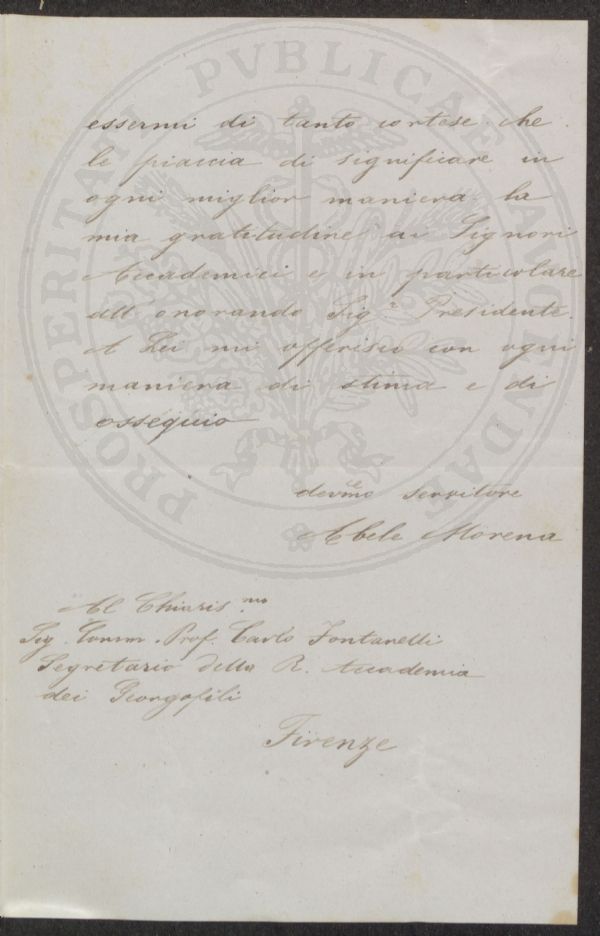 essermi di tanto cortese che
le piaccia di significare in
ogni miglior maniera la
mia gratitudine ai Signori
Accademici e in particolare
all'onorando Sig.r Presidente.
A Lei mi offerisco con ogni
maniera di stima e di
ossequio
devmo servitore
Abele Morena
Al Chiaris.mo
Sig. Comm. Prof. Carlo Fontanelli
Segretario della R. Accademia
dei Georgofili
Firenze
PROSPERITATI PVBLICAE AVGENDAE